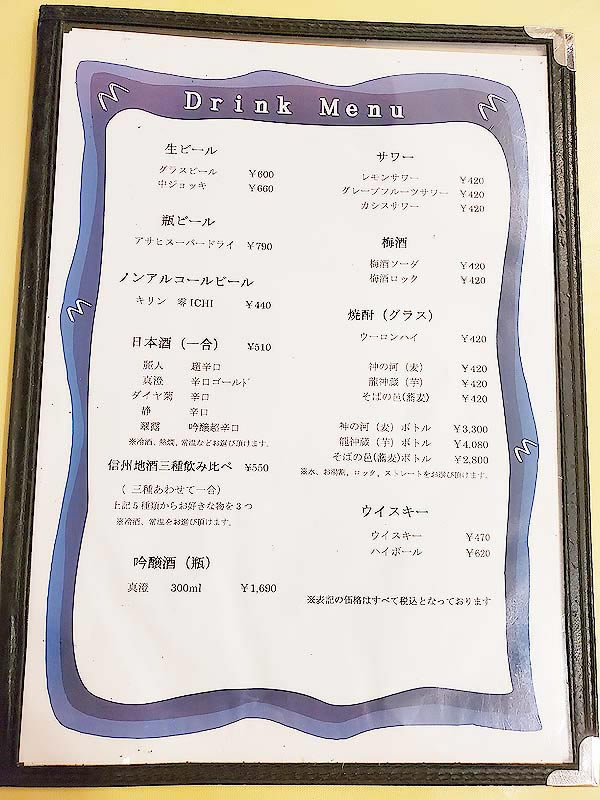 Drink Menu
生ビール
グラスビール ¥600
中ジョッキ ¥660
瓶ビール
アサヒスーパードライ ¥790
ノンアルコールビール
キリン 零ICHI ¥440
日本酒（一合） ¥510
麗人 超辛口
真澄 辛口ゴールド
ダイヤ菊 辛口
静 辛口
翠露 吟醸超辛口
※冷酒、熱燗、常温などお選び頂けます。
信州地酒三種飲み比べ ¥550
（ 三種あわせて一合）
上記５種類からお好きな物を３つ
※冷酒、常温をお選び頂けます。
吟醸酒（瓶）
真澄 300ml ¥1,690
サワー
レモンサワー ¥420
グレープフルーツサワー ¥420
カシスサワー ¥420
梅酒
梅酒ソーダ ¥420
梅酒ロック ¥420
焼酎（グラス）
ウーロンハイ ¥420
神の河（麦） ¥420
龍神蔵（芋） ¥420
そばの邑(蕎麦) ¥420
神の河（麦）ボトル ¥3,300
龍神蔵（芋）ボトル ¥4,080
そばの邑(蕎麦)ボトル ¥2,800
※水、お湯割、ロック、ストレートをお選び頂けます。
ウイスキー
ウイスキー ¥470
ハイボール ¥620
※表記の価格はすべて税込となっております